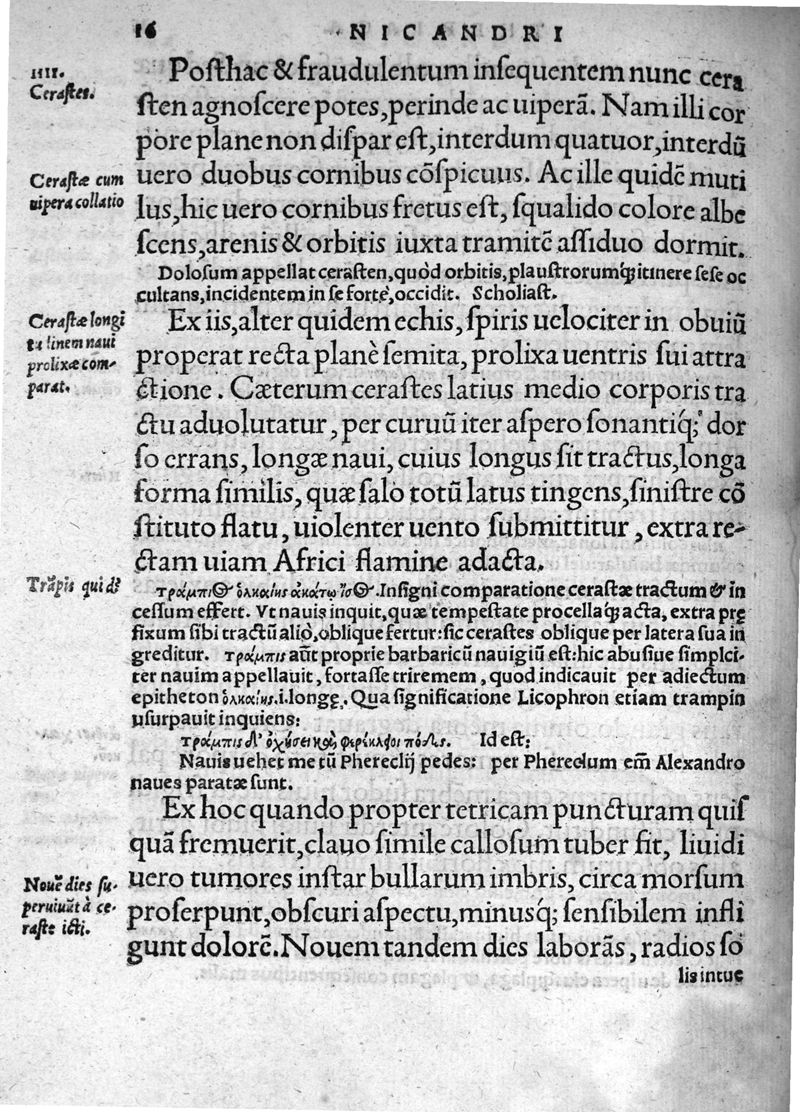 16 NICANDRI
IIII.
Cerastes.
Posthac & fraudulentum insequentem nunc cera
sten agnoscere potes, perinde ac uiperā. Nam illi cor
pore plane non dispar est, interdum quatuor, interdū
Cerastæ cum
uipera collatio
uero duobus cornibus cōspicuus. Ac ille quidē muti
lus, hic uero cornibus fretus est, squalido colore albe
scens, arenis & orbitis iuxta tramitē assiduo dormit.
Dolosum appellat cerasten, quòd orbitis, plaustrorumq́ue itinere sese oc
cultans, incidentem in se fortè, occidit. Scholiast.
Cerastæ longi
prolixæ com-
parat.
Ex iis, alter quidem echis, spiris uelociter in obuiū
properat recta planè semita, prolixa uentris sui attra
ctione. Cæterum cerastes latius medio corporis tra
ctu aduolutatur, per curuū iter aspero sonantiq́; dor
so errans, longæ naui, cuius longus sit tractus, longa
forma similis, quæ salo totū latus tingens, sinistre cō
stituto flatu, uiolenter uento submittitur, extra re-
ctam uiam Africi flamine adacta.
Trāpis quid
τράμπιος ὁλκαίης ἀκάτω ἶσος. Insigni comparatione cerastæ tractum & in
cessum effert. Vt nauis inquit, quæ tempestate procellaq́ue acta, extra prę
fixum sibi tractū aliò, oblique fertur: sic cerastes oblique per latera sua in
greditur. τράμπις aūt proprie barbaricū nauigiū est: hic abusiue simplci-
ter nauim appellauit, fortasse triremem, quod indicauit per adiectum
epitheton ὁλκαίης .i. longę. Qua significatione Licophron etiam trampin
usurpauit inquiens:
τράμπις μ' ὀχήσει καὶ φερέκλειοι πόδες. Id est:
Nauis uehet me tū Phereclij pedes: per Phereclum em̄ Alexandro
naues paratæ sunt.
Ex hoc quando propter tetricam puncturam quis
quā fremuerit, clauo simile callosum tuber fit, liuidi
Nouē dies su-
peruiuūt à ce-
raste icti.
uero tumores instar bullarum imbris, circa morsum
proserpunt, obscuri aspectu, minusq́; sensibilem infli
gunt dolorē. Nouem tandem dies laborās, radios so
lis intue